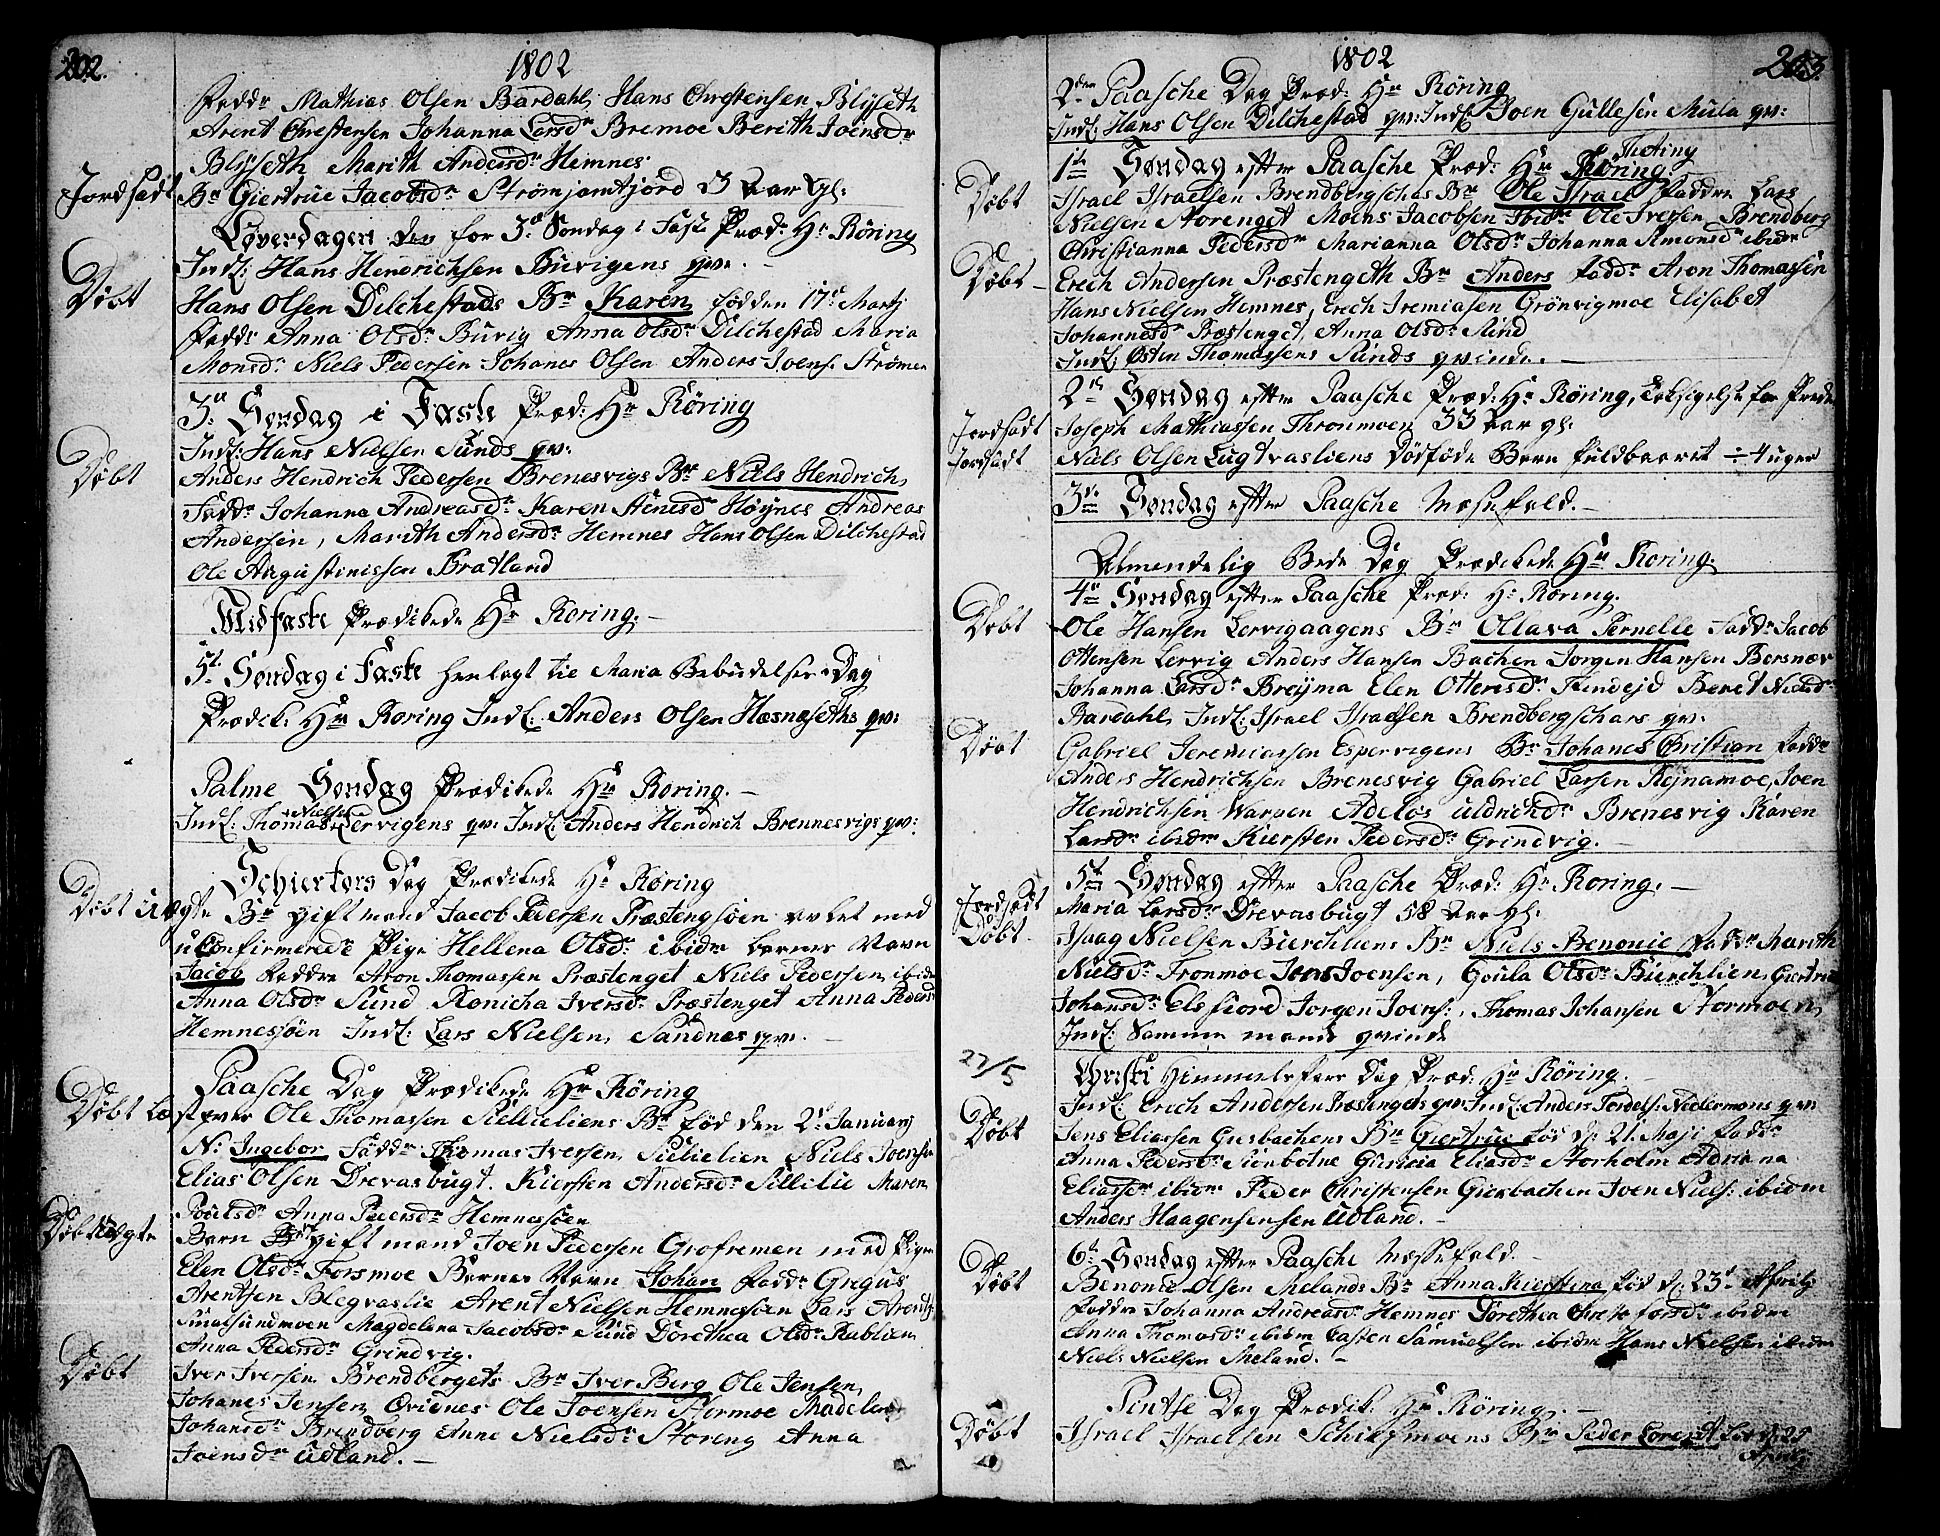 202.
1802
Fadd: Mathias Olsen Bardahl, Hans Chrestensen Blyseth
Arent Chrestensen Johanna Larsdr Bremoe Berith Joensdr
Blyseth Marith Andersdr Hemnes
Jordfæst Br Giertrue Jacobsdr Strømjamtjord 3 Aar gl:
Løverdagen den for 3de Søndag i Faste Præd: Hr Röring
Indl: Hans Hendrichsen Burigens qv: -
Döbt Hans Olsen Dilchestads Br Karen, fød den 17de Martj
Fadd: Anna Olsdr Burig Anna Olsdr Dilchestad Maria
Monsdr Niels Pedersen Johanes Olsen Anders Joens: Strømen
3de Søndag i Faste Præd: Hr Röring
Indl: Hans Nielsen Sunds qv:
Döbt Anders Hendrich Pedersen Brenesvigs Br Niels Hendrich,
Fadd: Johanna Andreasdr Karen Høynes Andreas
Andersen, Marith Andersdr Hemnes Hans Olsen Dilchestad
Ole Augustinissen Bratland
Midfaste Prædikede Hr Roring. -
5t Søndag i Faste henlagt til Maria Bebudelses Dag
Prædik: Hr Roring Indl. Anders Olsen Hæsnæseths qv:
Palme Søndag Prædikede Hr Roring. -
Indl: Thomas Nielsen Lervigens qv: Indl: Anders Hendrich Brennesvigs qv:
Schiertors Dag Prædikede Hr Röring
Döbt Uægte Br gift mand Jacob Pedersen Præstengsöen avlet med
uConfirmerede Pige Hellena Olsdr ibidm barnes Navn
Jacob Faddre Aron Thomassen Præstenget Niels Pedersen ibidm
Anna Olsdr Sund Konicha Iversdr Præstenget Anna Pedersdr
Hemnessöen Indl: Lars Nielsen, Sandnæs qv: -
Paasche Dag Prædikede Hr Röring
Döbt Læst over Ole Thomassen Sellieliens Br fød den 2d Januarj
N: Ingebor Fadd: Thomas Iversen, Sellielien Niels Joensen
Elias Olsen Drevasbugt. Kiersten Andersdr Sellelie Maren
Poulsdr Anna Pedersdr Hemnessöen
Döbt Uægte Barn gift mand Joen Pedersen Grofremen med Pigen
Elen Olsdr Forsmoe Barnes Navn Johan Fadd: Gregus
Arentsen Blegvaslie Arent Nielsen Hemnessöen Lars Arents:
Magdelena Jacobsdr Sund Dorethea Olsdr Rublien
Anna Pedersdr Grindvig.
Döbt Iver Iversen Brendbergets Br Iver Berg, Ole Jensen,
Johanes Jensen, Ovidnes Ole Joensen Stormoe Madelen
Johansdr Brendberg Anne Nielsdr Storeng Anna
Joensdr Udland. -
1802
203.
2den Paasche Dag Præd: Hr Röring
Indl: Hans Olsen Dilchestad qv: Indl: Joen Gullesen Mula qv:
1te Søndag efter Paasche Præd: Hr Röring
Döbt Israel Israelsen Brendbergschas Br Ole Israel Faddre Lars
Nielsen Storenget Moens Jacobsen Ibidm Ole Iversen Brendberg
Christianna Pedersdr Marianna Olsdr Johanna Simonsdr ibidm
Döbt - Erich Andersen Præstengeth Br Anders Fadd: Aron Thomassen
Hans Nielsen Hemnes, Erich Jremiasen Grönvigmoe Elisabet
Johannesdr Præstenget, Anna Olsdr Sund
Indl: Østen Thomassens Sunds qvinde. -
2de Søndag efter Paasche Præd: Hr Röring, Taksigelse for Freden
Jordfæst Joseph Mathiassen Thronmoen 33 Aar gl:
Jordfæst Niels Olsen Lugtvasliens Dödföde Barn fuldbaaret ÷ 4 uger
3de Søndag efter Paasche Mæssefald. -
Almindelig Bede Dag Prædikede Hr Roring.
4de Søndag efter Paasche Præd: Hr Roring.
Döbt Ole Hansen Lervigaagens Br Ollava Pernelle Fadd: Jacob
Ottensen Lervig Anders Hansen Bachen Jorgen Hansen Bersnæv
Johanna Larsdr Breyma Elen Otteresdr Beret Nielsdr
Bardahl, Indl: Israel Israelsen Brendbergschars qv:
Döbt Gabriel Jeremiassen Espervigens Br Johanes Christian Fadd:
Anders Hendrichsen Brenesvig Gabriel Larsen Rejnamoe, Joen
Hendrichsen Warpen Adelos Uldrichdr Brenesvig Karen
Larsdr ibidm Kiersten Pedersdr Grindvig. -
5te Søndag efter Paasche Præd: Hr Roring. -
Jordfæst Maria Larsdr Drevasbugt 58 Aar gl:
Döbt Isaag Nielsen Bierchliens Br Niels Benonie Fadd: Marith
Nielsdr Tronmoe Jens Joensen, Goula Olsdr Bierchlien, Giertrue
Johansdr Elsfiord Jorgen Joens:, Thomas Johansen Stormoen,
Indl: Samme mands qvinde
27/5
Christi Himmelsfarts Dag Præd: Hr Röring. -
Indl: Erich Andersen Præstengets qv: Indl: Anders Tordels: Nedermons qv:
Döbt Jens Eliassen Gusbachens Br Giertrue fød d: 21. Maji Fadd:
Anna Pedersdr Eliasdr Storholm Adriana
Eliasdr ibidm Peder Christensen Giersbachen Joen Niels: ibidm
Anders Haagensensen Udland. -
6te Søndag efter Paasche Mæssefald. -
Döbt Benonie Olsen Melands Br Anna Kierstina fød d: 23d Aprilj
Faddre Johanna Andreasdr Hemnes Dorethea ibidm
Anna Thomasdr ibidm Casten Samuelsen ibidm Hans Nielsen ibidm
Niels Nielsen Meland. -
Pintse Dag Prædik: Hr Röring. -
Döbt Israel Israelsen Schiefmoens Br Peder Lorentz fød d: 25
Aprilj